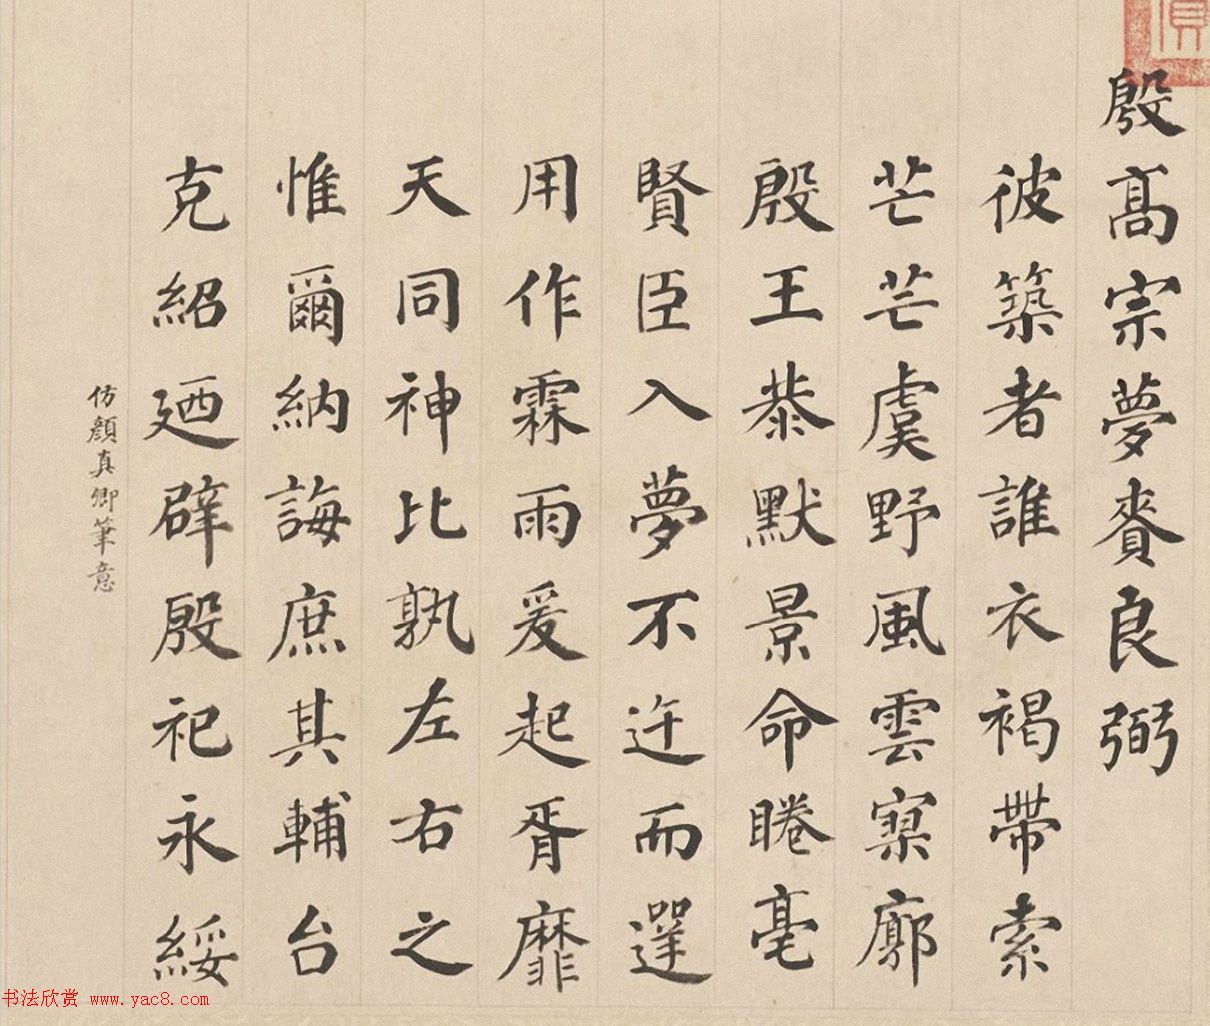 殷高宗夢賚良弼
彼築者誰衣褐帶索
芒芒虞野風雲寥廓
殷王恭默景命睠亳
賢臣入夢不迕而遻
用作霖雨爰起胥靡
天同神比孰左右之
惟爾納誨庶其輔台
克紹廼辟殷祀永綏
仿顏真卿筆意
书法欣赏 www.yac8.com